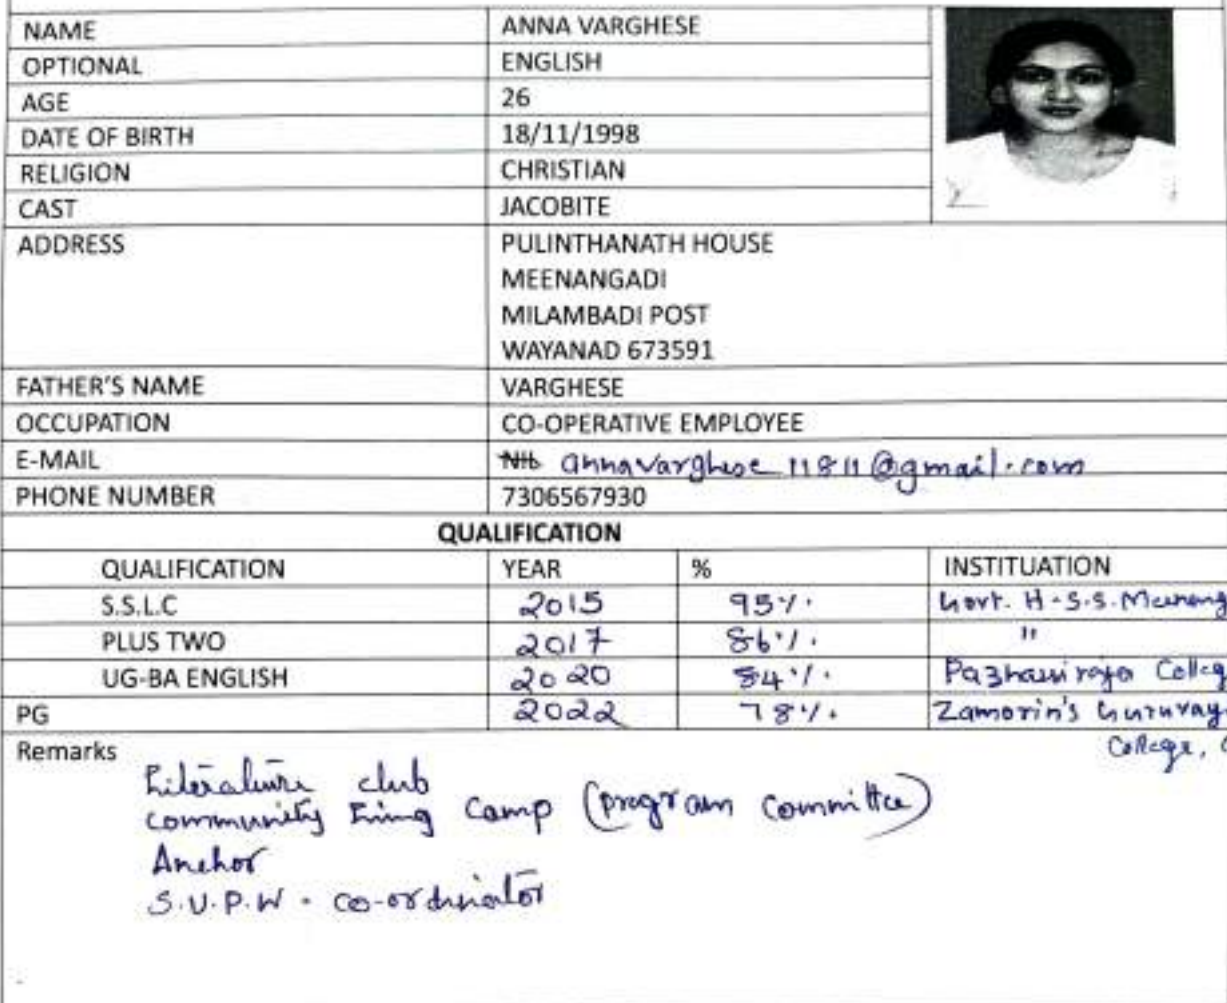 NAME ANNA VARGHESE
OPTIONAL ENGLISH
AGE 26
DATE OF BIRTH 18/11/1998
RELIGION CHRISTIAN
CAST JACOBITE
ADDRESS PULINTHANATH HOUSE
MEENANGADI
MILAMBADI POST
WAYANAD 673591
FATHER'S NAME VARGHESE
OCCUPATION CO-OPERATIVE EMPLOYEE
E-MAIL annavarghese11811@gmail.com
PHONE NUMBER 7306567930
QUALIFICATION
QUALIFICATION YEAR % INSTITUATION
S.S.L.C 2015 95% Govt. H.S.S. Meenang
PLUS TWO 2017 86% "
UG-BA ENGLISH 2020 84% Pazhassiraja Colleg
PG 2022 78% Zamorin's Guruvay
College,
Remarks
Literature club
community living camp (program committee)
Anchor
S.U.P.W - co-ordinator